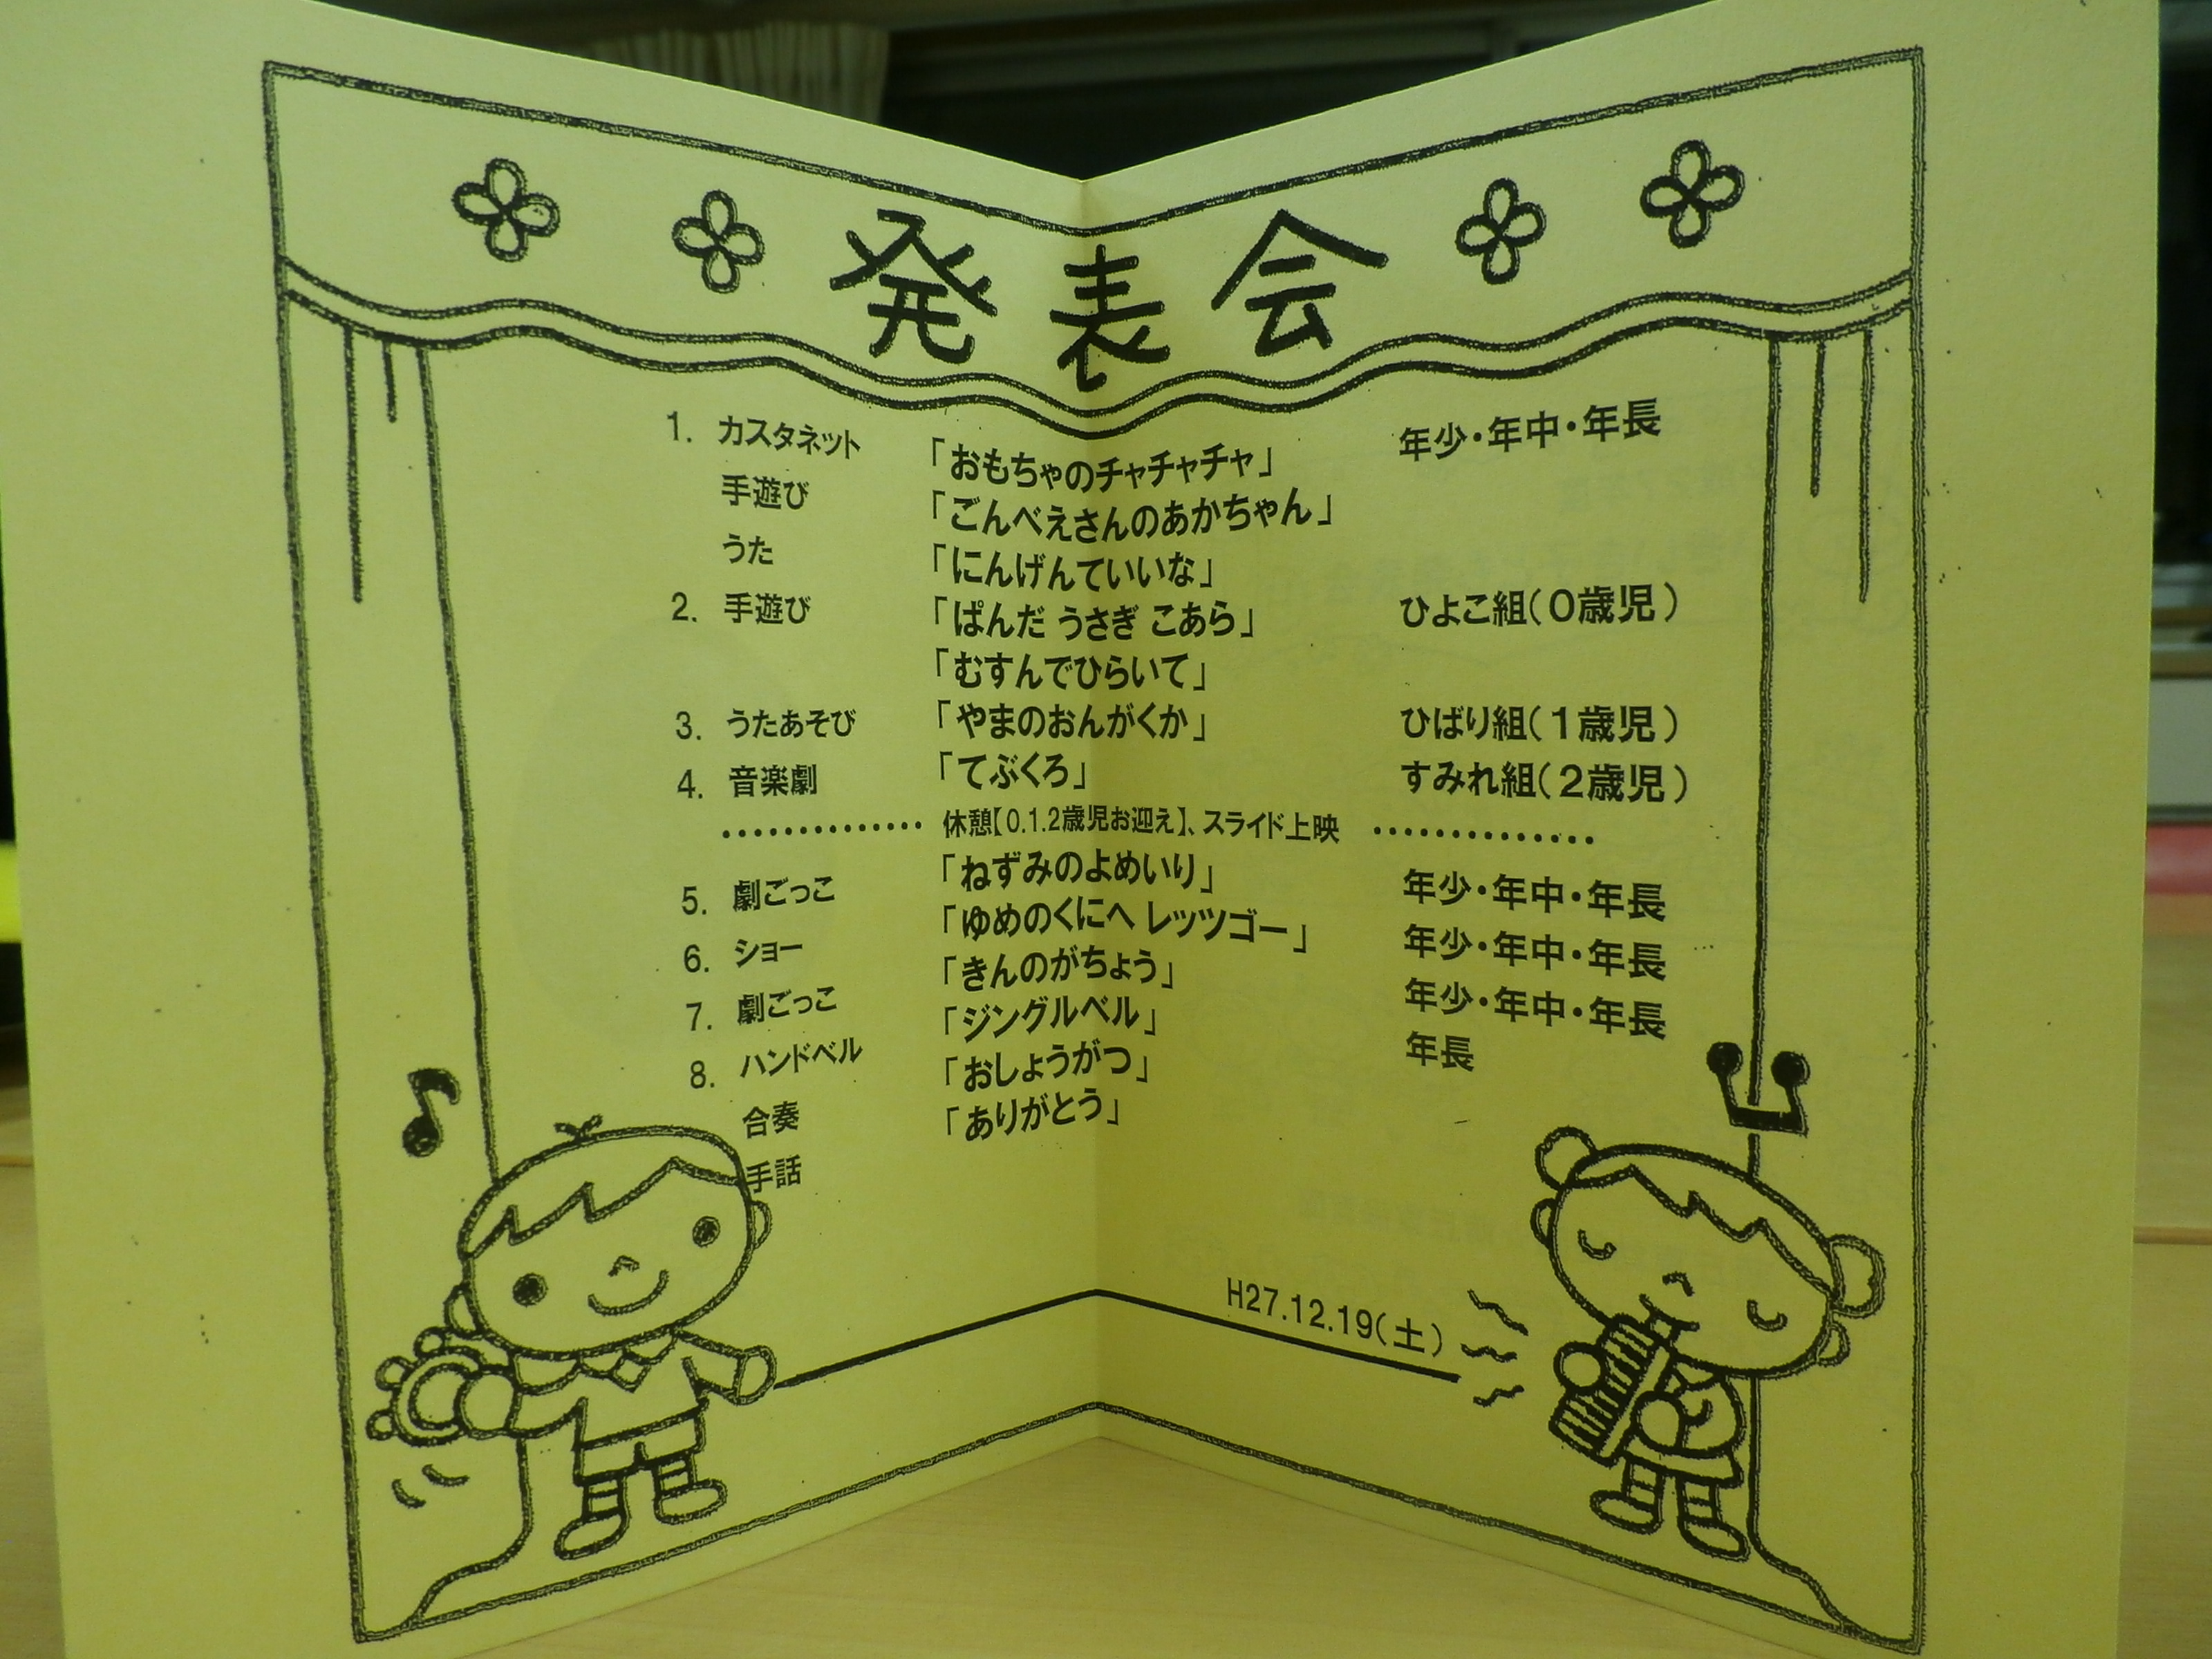 発表会
1. カスタネット 「おもちゃのチャチャチャ」 年少・年中・年長
手遊び 「ごんべえさんのあかちゃん」
うた 「にんげんていいな」
2. 手遊び 「ぱんだ うさぎ こあら」 ひよこ組(0歳児)
「むすんでひらいて」
3. うたあそび 「やまのおんがくか」 ひばり組(1歳児)
4. 音楽劇 「てぶくろ」 すみれ組(2歳児)
・・・・・・・・・・・・・・ 休憩【0.1.2歳児お迎え】、スライド上映 ・・・・・・・・・・・・・・
5. 劇ごっこ 「ねずみのよめいり」 年少・年中・年長
6. ショー 「ゆめのくにへ レッツゴー」 年少・年中・年長
7. 劇ごっこ 「きんのがちょう」 年少・年中・年長
8. ハンドベル 「ジングルベル」 年長
合奏 「おしょうがつ」
手話 「ありがとう」
H27.12.19(土)